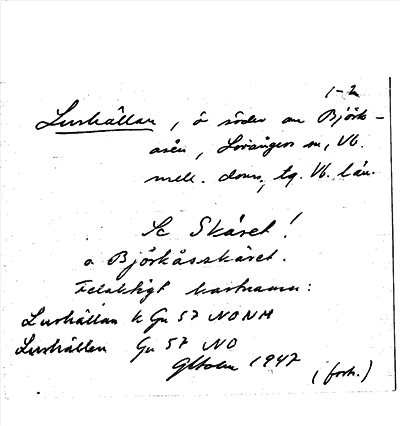 1-2
Lushällan, ö söder om Björk-
åsen, Lövångers sn, Vb.
mell. doms, tg. Vb. län.
Se Skäret!
o Björkåsskäret.
Felaktigt kartnamn:
Lushällan k Gn 57 NONH
Lushällen Gn 57 NO
GHolm 1947
(forts.)